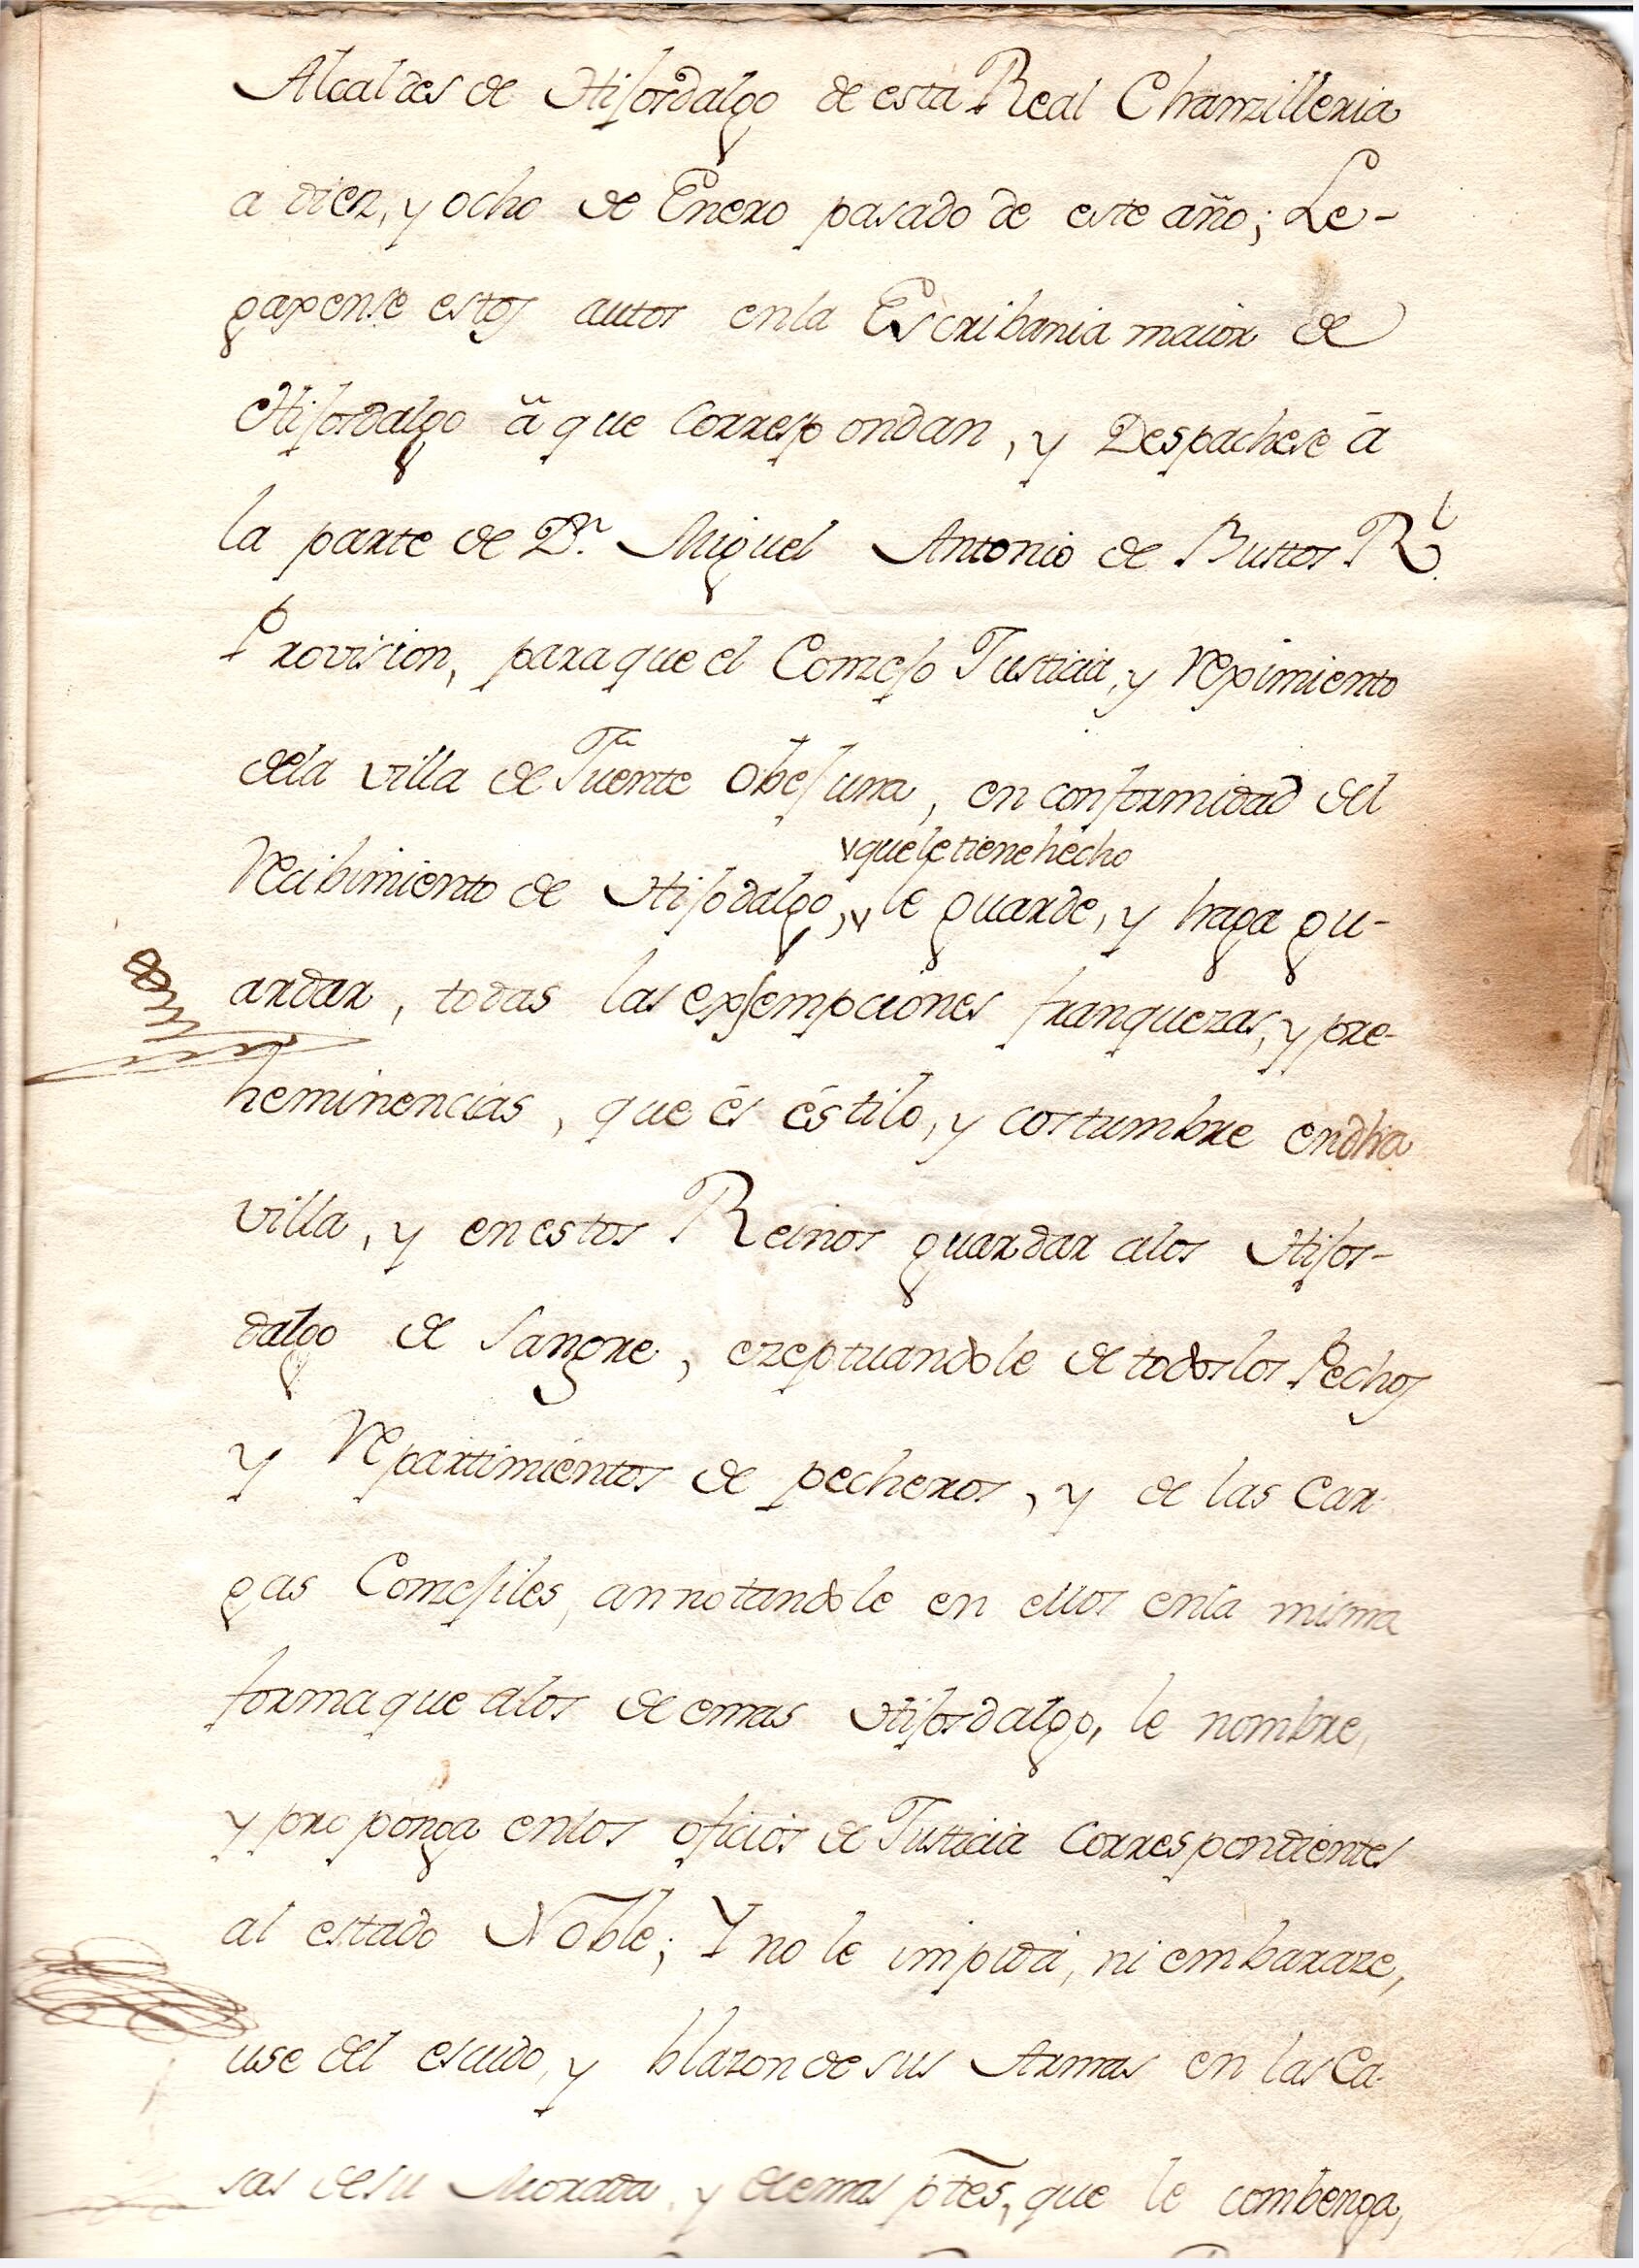 Alcaldes de Hijosdalgo de esta Real Chanzilleria
a diez, y ocho de Enero pasado de este año; Le-
gaxense estos autos en la Escribania maior de
Hijosdalgo â que correspondan, y Despachese â
la parte de Dn. Miguel Antonio de Bustos Rl.
Provision, para que el Conzejo Justicia, y reximiento
dela villa de Fuente obejuna, en conformidad del
y que le tiene hecho
recibimiento de Hijodalgo, le guarde, y haga gu-
ardar, todas las exsempciones franquezas, y pre-
heminencias, que és éstilo, y costumbre en dha
villa, y en estos Reinos guardar alos Hijos-
dalgo de sangre, ezeptuandole de todos los Pechos
y repartimientos de pecheros, y de las Car-
gas Conzejiles, annotandole en ellos enla misma
forma que alos demas Hijosdalgo, le nombre,
y proponga enlos oficios de Justicia correspondientes
al estado Noble; Y no le impida, ni embaraze,
use del escudo, y blazon de sus Armas en las Ca-
sas de su Morada, y demas ptes, que le combenga,